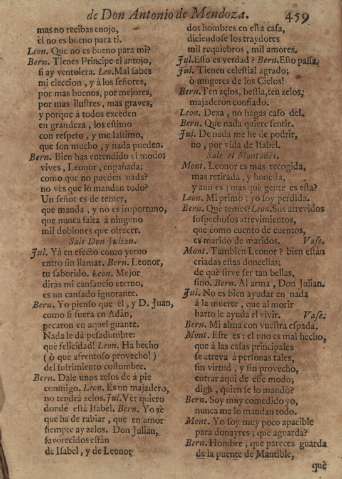 de Don Antonio de Mendoza. 459
mas no recibas enojo,
èl no es bueno para tì.
Leon. Que no es bueno para mì?
Bern. Tienes Principe el antojo,
si ay ventolera. Leo. Mal sabes
mi eleccion, y à los señores,
por mas buenos, por mejores,
por mas ilustres, mas graves,
y porque à todos exceden
en grandeza, los estimo
con respeto, y me lastimo,
que son mucho, y nada pueden.
Bern. Bien has entendido si modos
vives, Leonor, engañada;
como que no pueden nada?
no ves que lo mandan todo?
Un señor es de temer,
que manda, y no es importuno,
que nunca falta à ninguno
mil doblones que ofrecer.
Sale Don Julian.
Jul. Yà en efecto como yerno
entro sin llamar. Bern. Leonor,
tu saborido. Leon. Mejor
diras mi cansancio eterno,
es un cansado ignorante.
Bern. Yo pienso que èl, y D. Juan,
como si fuera en Adàn,
pecaron en aquel guante.
Nada le dà pesadumbre:
què felicidad! Leon. Ha hecho
(ò que afrentoso provecho!)
del sufrimiento costumbre.
Bern. Dale unos zelos de à pie
conmigo. Leon. Es un majadero,
no tendrà zelos. Jul. Ver quiero
donde està Isabel. Bern. Yo sè
que ha de rabiar, que en amor
siempre ay zelos. Don Julian,
favorecidos estàn
de Isabel, y de Leonor
dos hombres en esta casa,
diciendole los traydores
mil requiebros, mil amores.
Jul. Esto es verdad? Bern. Esto passa.
Jul. Tienen celestial agrado;
ò mugeres de los Cielos!
Bern. Ten zelos, bestia, ten zelos;
majaderon confiado.
Leon. Dexa, no hagas caso dèl.
Bern. Que nada quiere sentir.
Jul. De nada me he de podrir,
no, por vida de Isabel.
Sale el Montañès.
Mont. Leonor es mas recogida,
mas retirada, y honesta,
y aun es; mas què gente es esta?
Leon. Mi primo: yo soy perdida.
Bern. Què temes? Leon. Sus atrevidos
sospechosos atrevimientos,
que como cuento de cuentos,
es marido de maridos. Vase.
Mont. Tambien Leonor? bien estàn
criadas estas doncellas;
de què sirve ser tan bellas,
sino. Bern. Al arma, Don Julian.
Jul. No es bien ayudar en nada
à la muerte, que al morir
harto le ayuda el vivir. Vase.
Bern. Mi alma con vuestra espada.
Mont. Este es: el uno es mal hecho,
que à las casas principales
se atreva à personas tales,
sin virtud, y sin provecho,
entrar aqui de esse modo;
diga, quien se lo mandò?
Bern. Soy muy comedido yo,
nunca me lo mandan todo.
Mont. Yo soy muy poco apacible
para donayres; què aguarda?
Bern. Hombre, que pareces guarda
de la puente de Mantible,
què